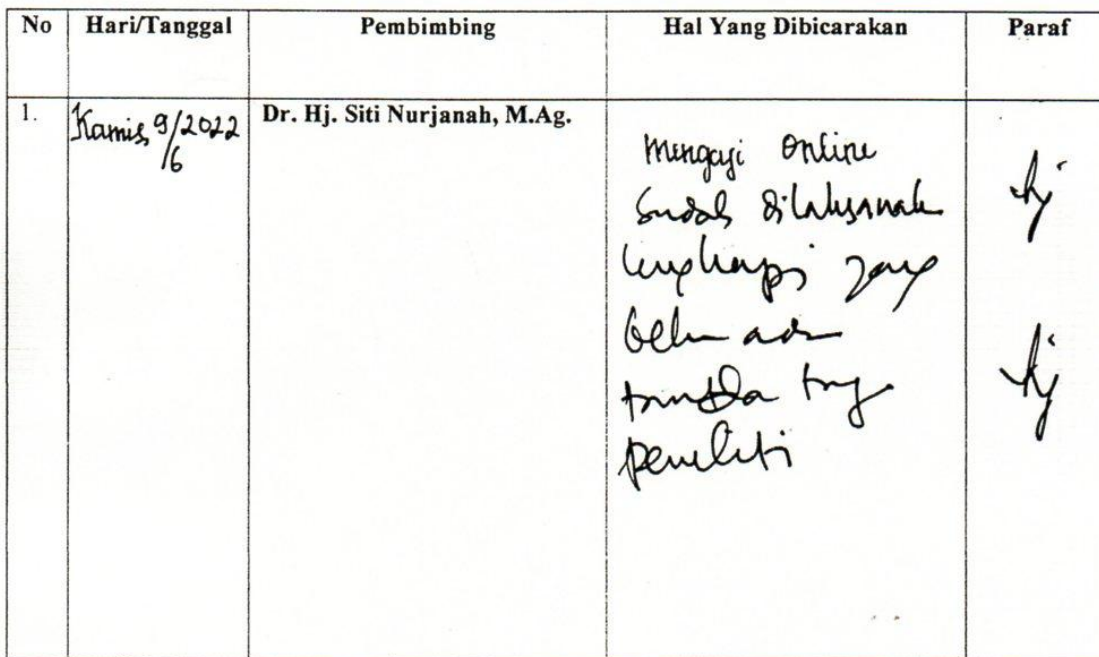 No Hari/Tanggal Pembimbing Hal Yang Dibicarakan Paraf
1. Kamis, 9/6 2022 Dr. Hj. Siti Nurjanah, M.Ag.
mengaji online
sudah dilaksanak
lengkapi yang
belu ada
peneliti